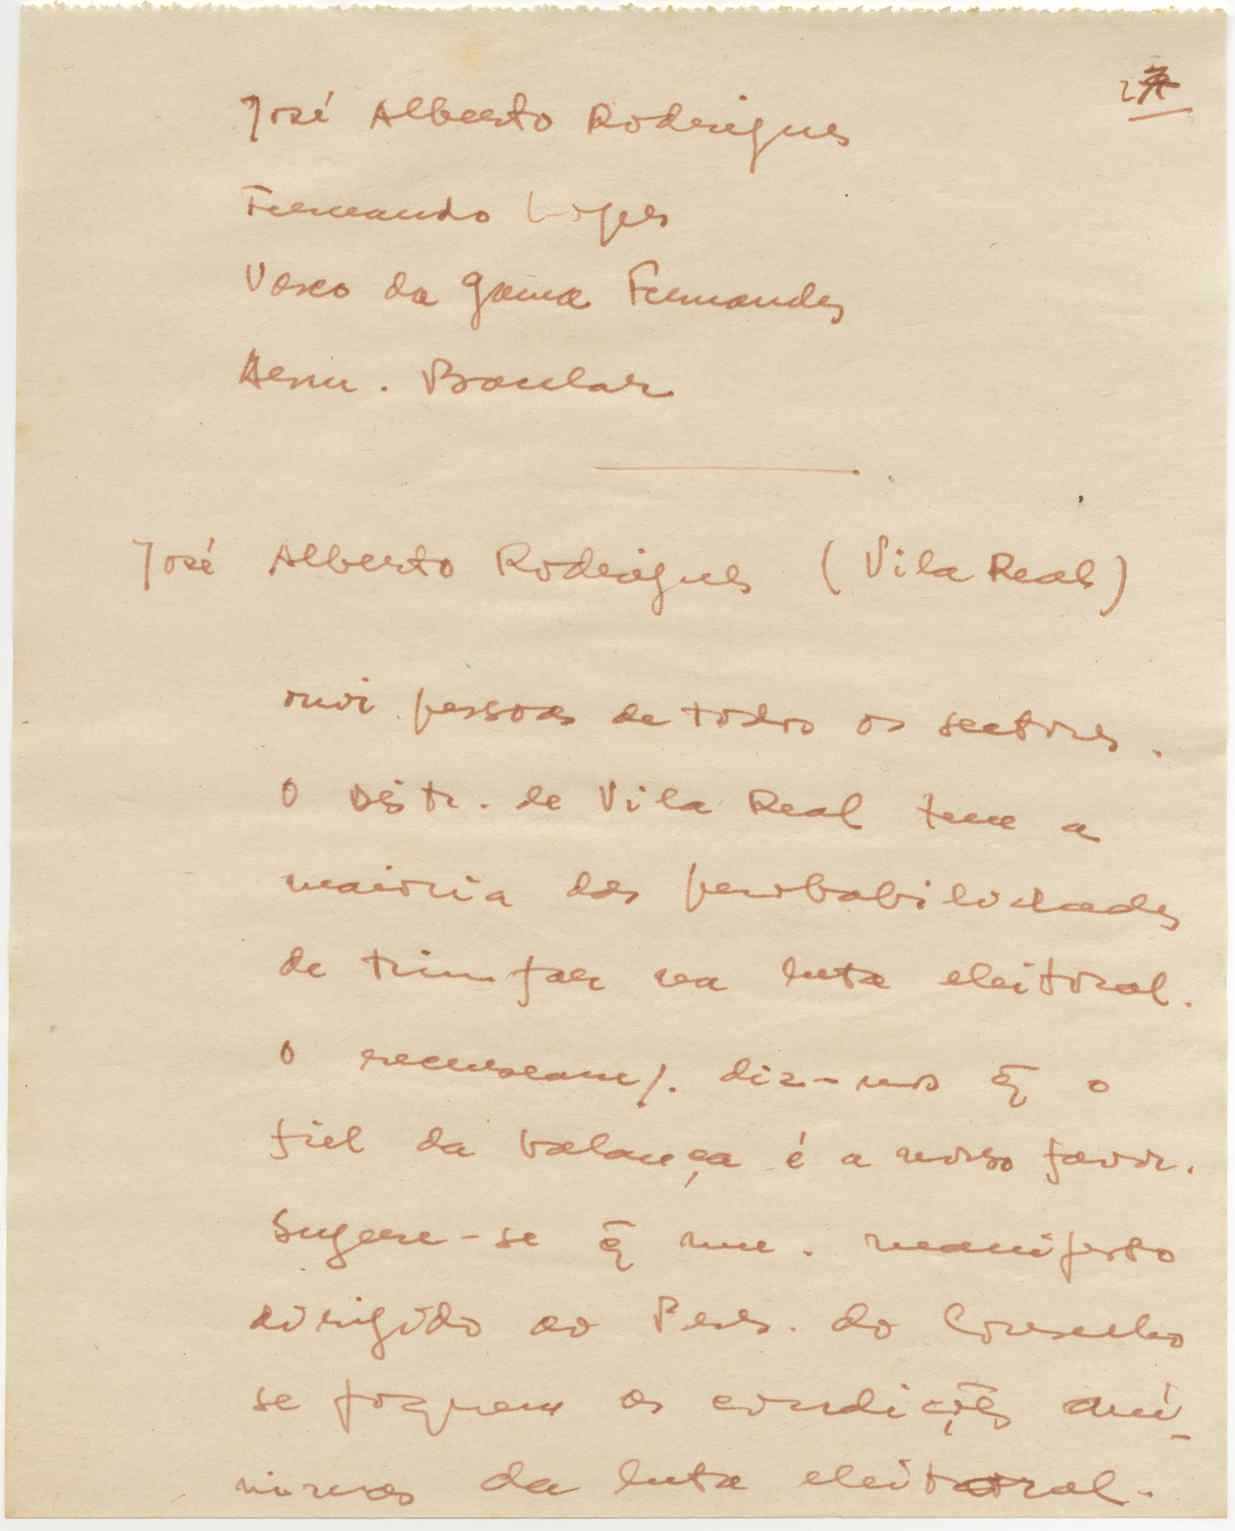 José Alberto Rodrigues
Fernando Lopes
Vasco da Gama Fernandes
José Alberto Rodrigues (Vila Real)
ouvi pessoas de todos os sectores.
O Distr. de Vila Real tem a
maioria das probabilidades
de triunfar na luta eleitoral.
O recenseam/. diz-nos q̃ o
fiel da balança é a nosso favor.
Sugere-se q̃ num. manifesto
dirigido ao Pres. do Conselho
se foquem as condições mí-
nimas da luta eleitoral.